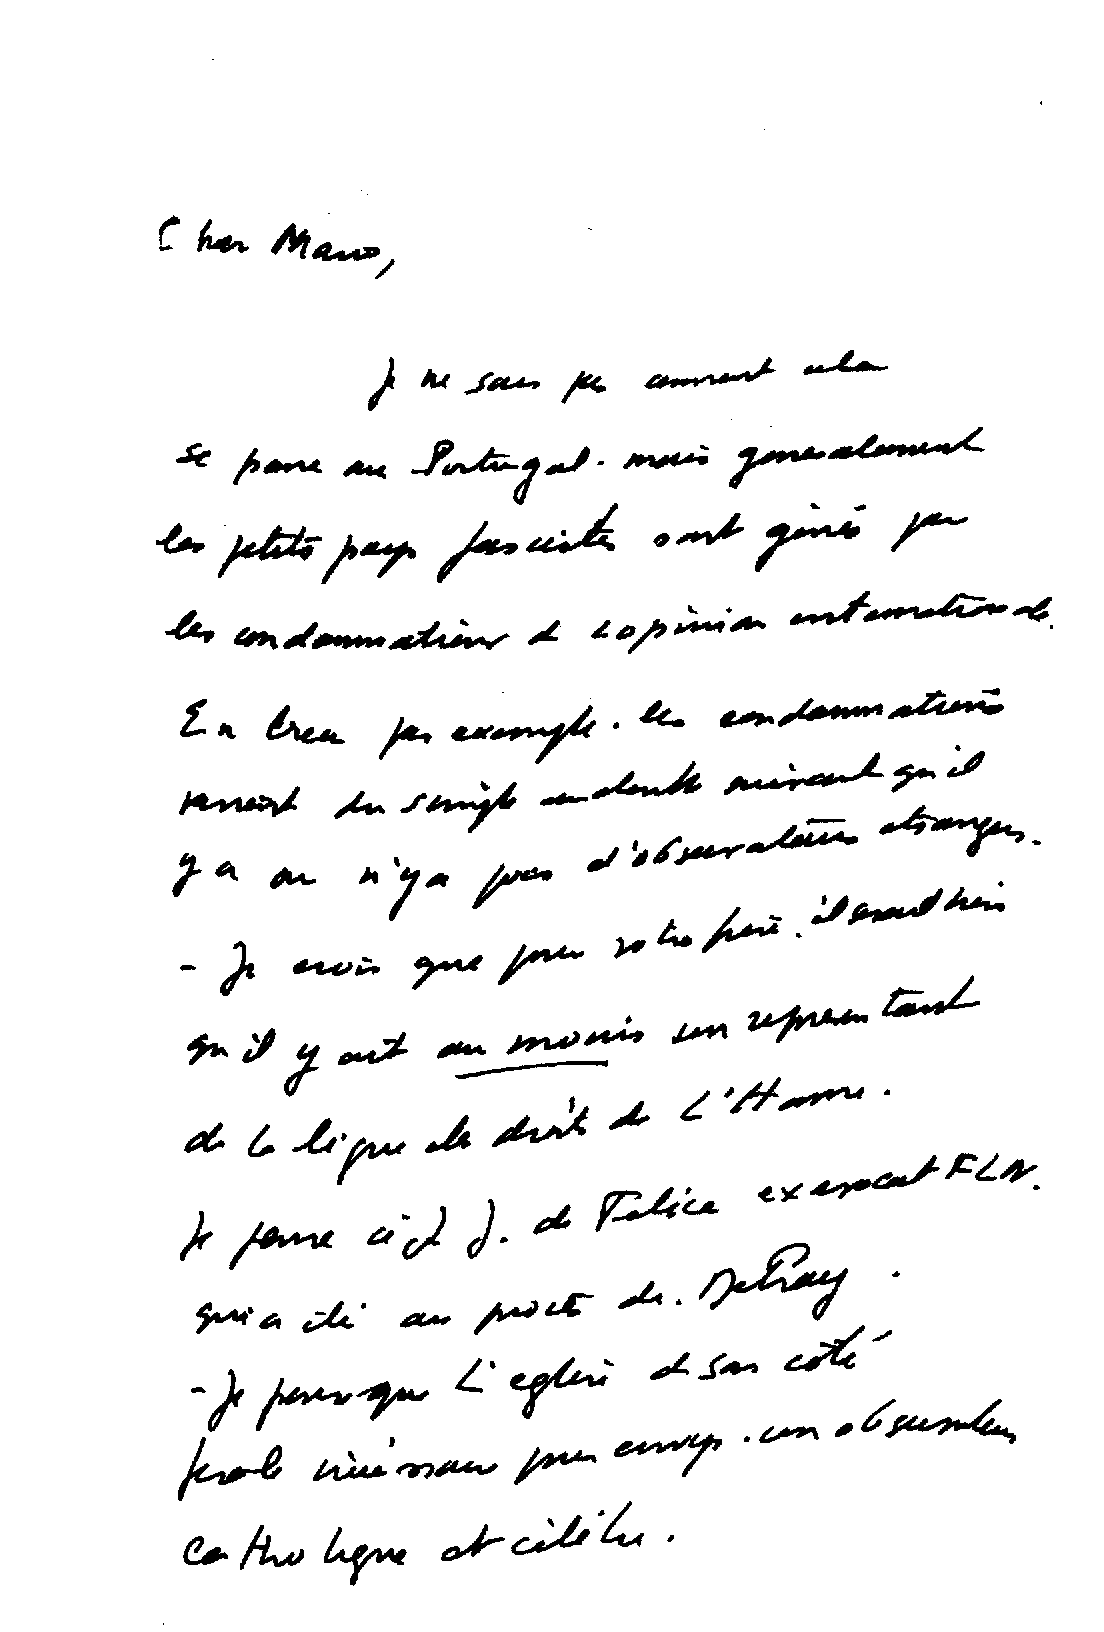 Cher Mario,
Je ne sais pas comment cela
se passe au Portugal. mais generalement
les petits pays fascistes sont gênés par
les condamnations de l'opinion internationale.
En Grece par exemple. les condamnations
varient du simple au double suivant qu'il
y a ou n'y a pas d'observateurs etrangers.
- Je crois que pour votre frère. il serait bien
qu'il y ait au moins un representant
de la ligue des droits de L'Homme.
Je pense à J. de Felice ex avocat FLN.
qui a été au procès de. Debray.
- Je pense que L'eglise de son côté
fera le nécessaire pour envoyer. un observateur
Catholique et célèbre.